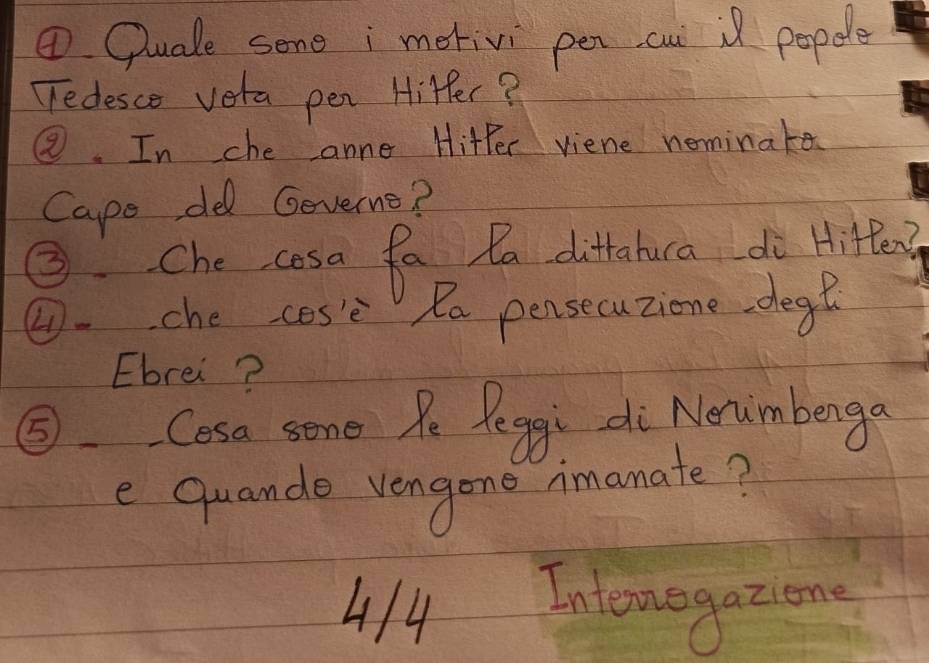 ① Quale sono i motivi per cui il popolo
Tedesco vota per Hitler?
②. In che anno Hitler viene nominato
Capo del Governo?
③- Che cosa fa la dittatura di Hitler?
④- che cos'è la persecuzione degli
Ebrei ?
⑤- Cosa sono le leggi di Norimberga
e quando vengono imanate ?
4/4 Interrogazione